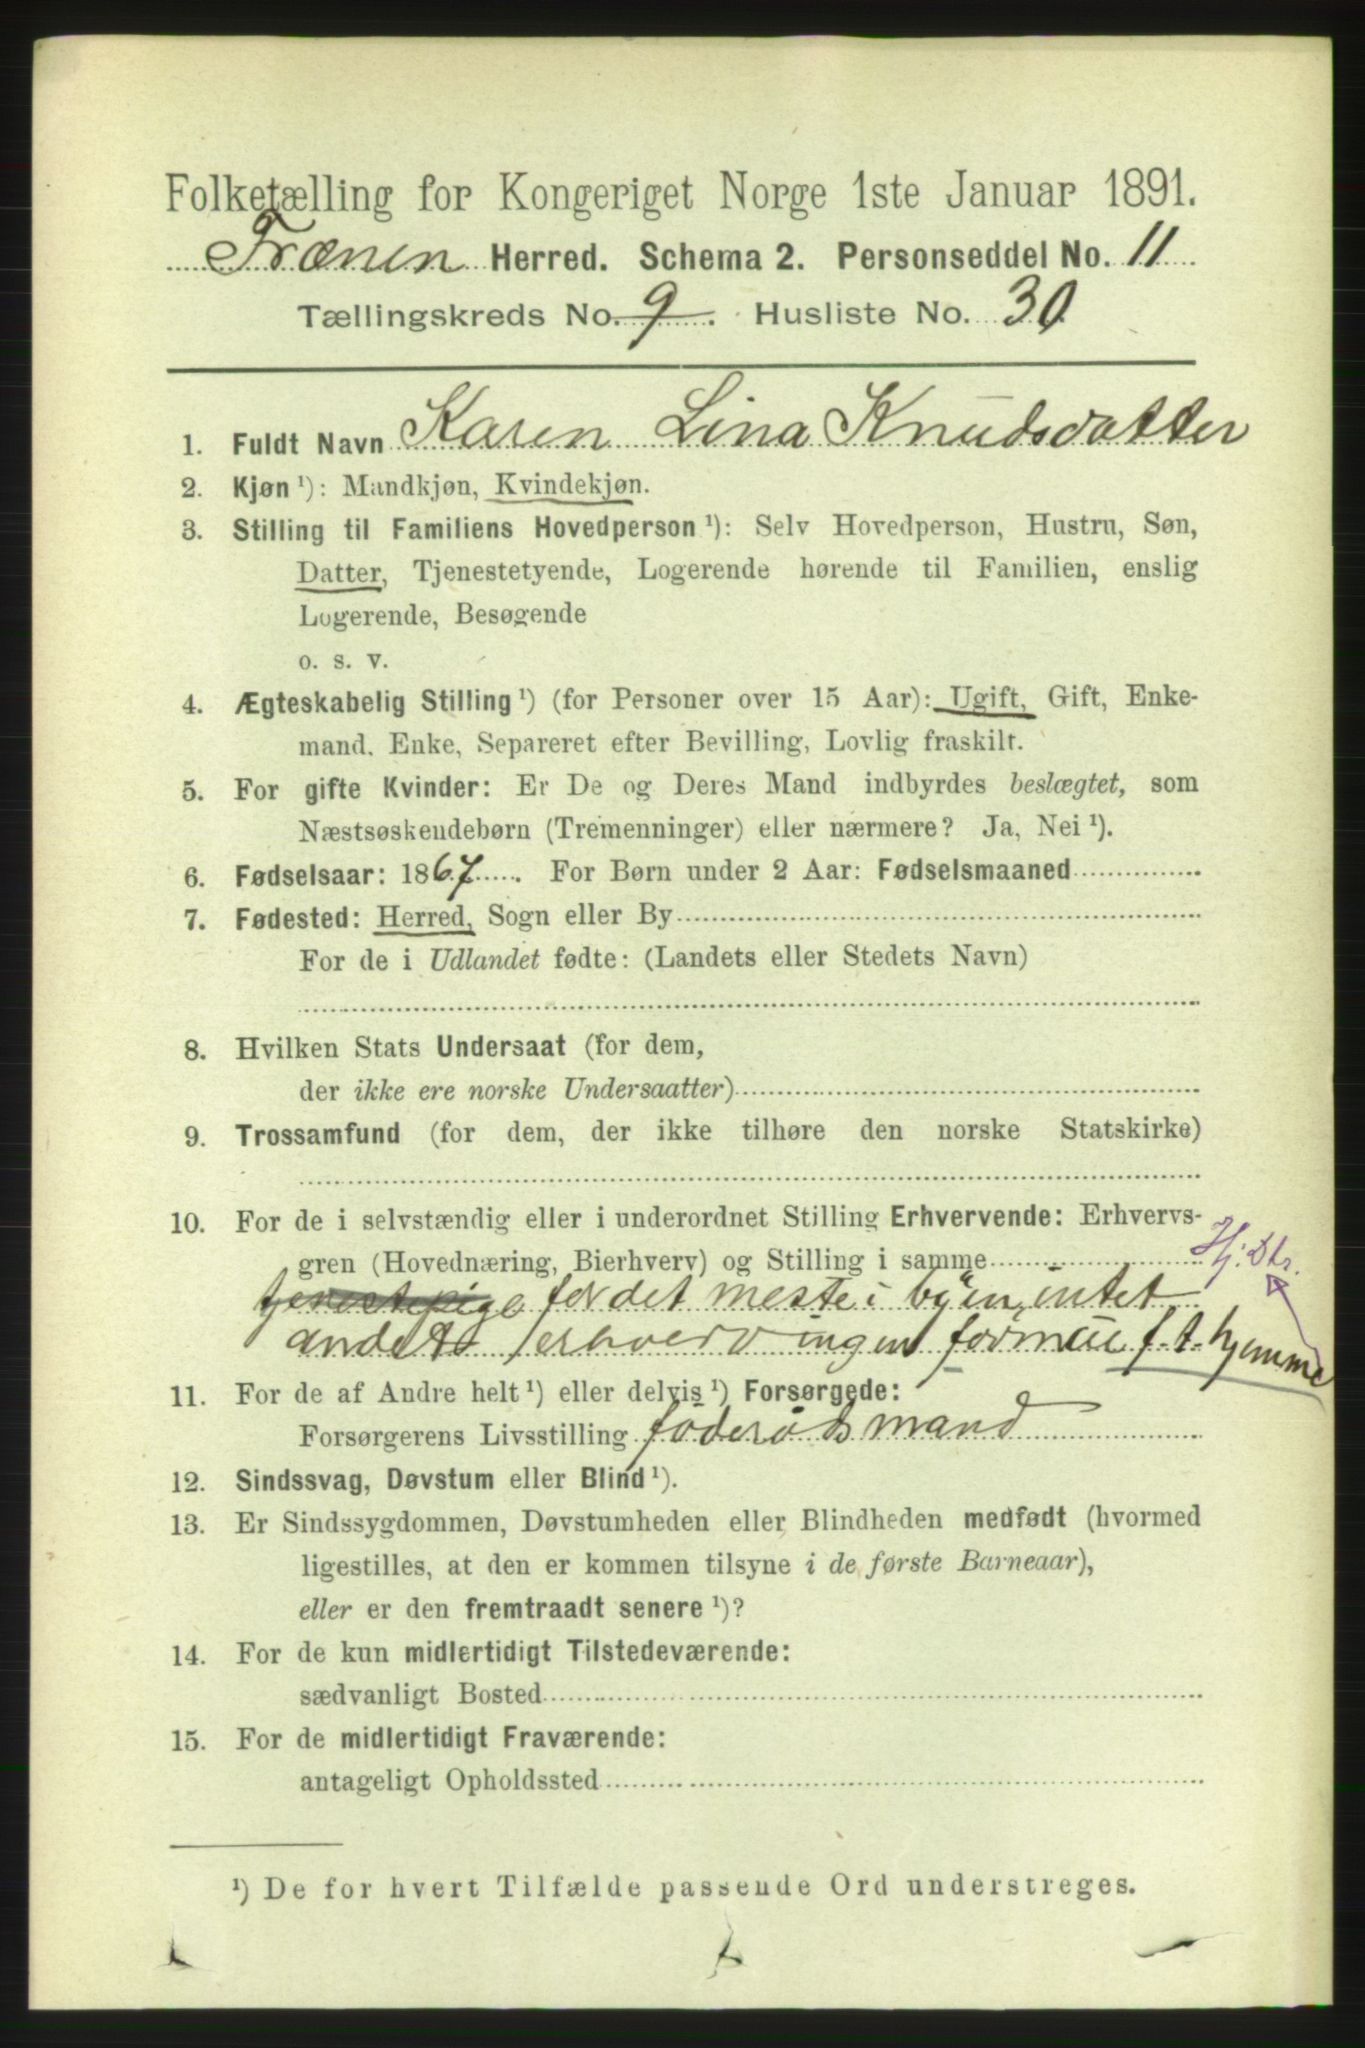 Folketælling for Kongeriget Norge 1ste Januar 1891.
Frænen Herred. Schema 2. Personseddel No. 11
Tællingskreds No. 9. Husliste No. 30
1. Fuldt Navn Karen Lina Knudsdatter
2. Kjøn ¹): Mandkjøn, Kvindekjøn.
3. Stilling til Familiens Hovedperson ¹): Selv Hovedperson, Hustru, Søn,
Datter, Tjenestetyende, Logerende hørende til Familien, enslig
Logerende, Besøgende
o. s. v.
4. Ægteskabelig Stilling ¹) (for Personer over 15 Aar): Ugift, Gift, Enke-
mand, Enke, Separeret efter Bevilling, Lovlig fraskilt.
5. For gifte Kvinder: Er De og Deres Mand indbyrdes beslægtet, som
Næstsøskendebørn (Tremenninger) eller nærmere? Ja, Nei ¹).
6. Fødselsaar: 1867. For Børn under 2 Aar: Fødselsmaaned
7. Fødested: Herred, Sogn eller By
For de i Udlandet fødte: (Landets eller Stedets Navn)
8. Hvilken Stats Undersaat (for dem,
der ikke ere norske Undersaatter)
9. Trossamfund (for dem, der ikke tilhøre den norske Statskirke)
10. For de i selvstændig eller i underordnet Stilling Erhvervende: Erhvervs-
gren (Hovednæring, Bierhverv) og Stilling i samme Hj: Dtr.
tjenestepige for det meste i byen, intet
andet erhverv ingen formue f. t. hjemme
11. For de af Andre helt ¹) eller delvis ¹) Forsørgede:
Forsørgerens Livsstilling föderådsmand
12. Sindssvag, Døvstum eller Blind ¹).
13. Er Sindssygdommen, Døvstumheden eller Blindheden medfødt (hvormed
ligestilles, at den er kommen tilsyne i de første Barneaar),
eller er den fremtraadt senere ¹)?
14. For de kun midlertidigt Tilstedeværende:
sædvanligt Bosted
15. For de midlertidigt Fraværende:
antageligt Opholdssted
¹) De for hvert Tilfælde passende Ord understreges.